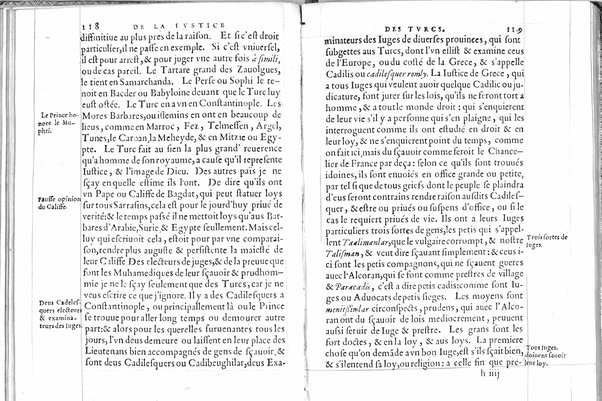 118
DE LA IVSTICE
diffinitiue au plus pres de la raison. Et si c'est droit
particulier, il ne passe en exemple. Si c'est vniuersel,
il est pour arrest, & pour juger vne autre fois à simili,
ou de cas pareil. Le Tartare grand des Zauolgues,
le tient en Samarchanda. Le Perse ou Sophi le te-
noit en Bacder ou Babyloine deuant que le Turc luy
eust ostée. Le Turc en a vn en Constantinople. Les
Mores Barbares, ou istemins en ont en beaucoup de
lieux, comme en Marroc, Fez, Telmessen, Argel,
Tunes, le Caroan, la Meheyde, & en Mitzae ou Egy-
pte. Le Turc fait au sien la plus grand' reuerence
qu'à homme de son royaume, a cause qu'il represente
Iustice, & l'image de Dieu. Des autres païs je ne
sçay en quelle estime ils l'ont. De dire qu'ils ont
vn Pape ou Califfe de Bagdat, qui peut statuer loys
sur tous Sarrasins, cela est pour le jourd'huy priué de
verité: & le temps passé il ne mettoit loys qu'aus Bar-
bares d'Arabie, Surie, & Egypte seulement. Mais cel-
luy qui escriuoit cela, estoit pour par vne comparai-
son, rendre plus auguste & persistente la maiesté de
leur Califfe Des electeurs de juges, & de la preuue que
font les Muhamediques de leur sçauoir & prudhom-
mie je ne le sçay seulement que des Turcs, car je ne
veus escrire ce que j'ignore. Il y a des Cadilesquers a
Constantinople, ou principallement là ou le Prince
se trouue pour aller long temps ou demourer autre
part: & alors pour les querelles suruenantes tous les
jours, l'vn deus demeure ou laissent en leur place des
Lieutenans bien accompagnés de gens de sçauoir, &
sont deus Cadilesquers ou Cadibeughilar, deus Exa-
Le Prince ho-
nore le Mu-
phti.
Fausse opinion
du Califfe.
Deus Cadeles-
quers electeurs
& examina-
teurs des Iuges.
DES TVRCS.
119
minateurs des Iuges de diuerses prouinces, qui sont
subgettes aus Turcs, dont l'vn eslist & examine ceus
de l'Europe, ou du costé de la Grece, & s'appelle
Cadilis ou cadilesquer romly. La Iustice de Grece, qui
a tous Iuges qui veulent auoir quelque Cadilic ou ju-
dicature, sont jurer sur les lois, qu'ils ne feront tort a
homme, & a tout le monde droit: qui s'enquierent
de leur vie s'il y a personne qui s'en plaigne, qui les
interroguent comme ils ont estudié en droit & en
leur loy, & ne s'enquierent point du temps, comme
on fait ici, mais du sçauoir comme seroit le Chance-
lier de France par deça: selon ce qu'ils sont trouués
idoines, ils sont enuoiés en office grand ou petite,
par tel si que de tous griefs dont le peuple se plaindra
d'eus seront contrains rendre raison ausdits Cadiles-
quer, & estre ou priués ou suspens d'office, ou si le
cas le requiert priués de vie. Ils ont a leurs Iuges
particuliers trois sortes de gens, les petis qui s'appel-
lent Taalimanlar, que le vulgaire corrompt, & nostre
Talisman, & veut dire sçauant simplement: & ceus i-
ci sont les petis compagnons, qui ne sçauent gueres
auec l'Alcoran, qui se font comme prestres de village
& Paracadis, c'est a dire petis cadis: comme sont Iu-
ges ou Aduocats de petis sieges. Les moyens sont
menissimlar circonspects, prudens, qui auec l'Alco-
ran ont du sçauoir de lois mediocrement, peuuent
aussi seruir de Iuge & prestre. Les grans sont les
fort doctes, & en la loy, & aus loys. La premiere
chose qu'on demãde au bon Iuge, est s'ils sçait bien,
& s'il entend sa loy, ou religion: a celle fin que pre-
h iiij
Trois sortes de
Iuges.
Tous Iuges.
doiuent sauoir
leur loy.